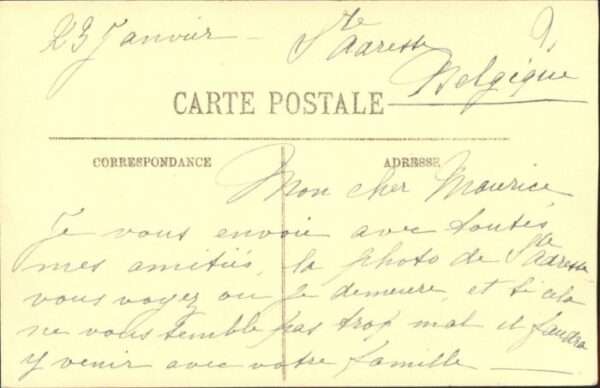 23 Janvier - Ste Adresse
Belgique
CARTE POSTALE
CORRESPONDANCE ADRESSE
Mon cher Maurice
Je vous envoie avec toutes
mes amitiés, la photo de Ste Adresse
vous voyez ou je demeure, et si cela
ne vous semble pas trop mal il faudra
y venir avec votre famille